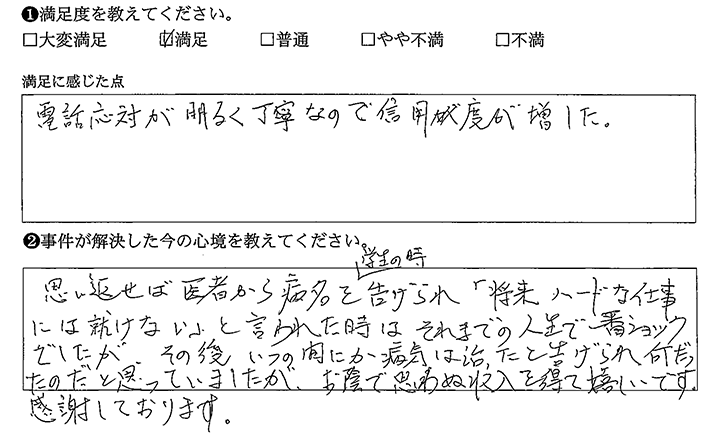 ❶満足度を教えてください。
□大変満足 ☑満足 □普通 □やや不満 □不満
満足に感じた点
電話応対が明るく丁寧なので信用度が増した。
❷事件が解決した今の心境を教えてください。
学生の時
思い返せば医者から病名を告げられ「将来ハードな仕事
には就けない」と言われた時はそれまでの人生で一番ショック
でしたが、その後いつの間にか病気は治ったと告げられ何だっ
たのだと思っていましたが、お陰で思わぬ収入を得て嬉しいです。
感謝しております。